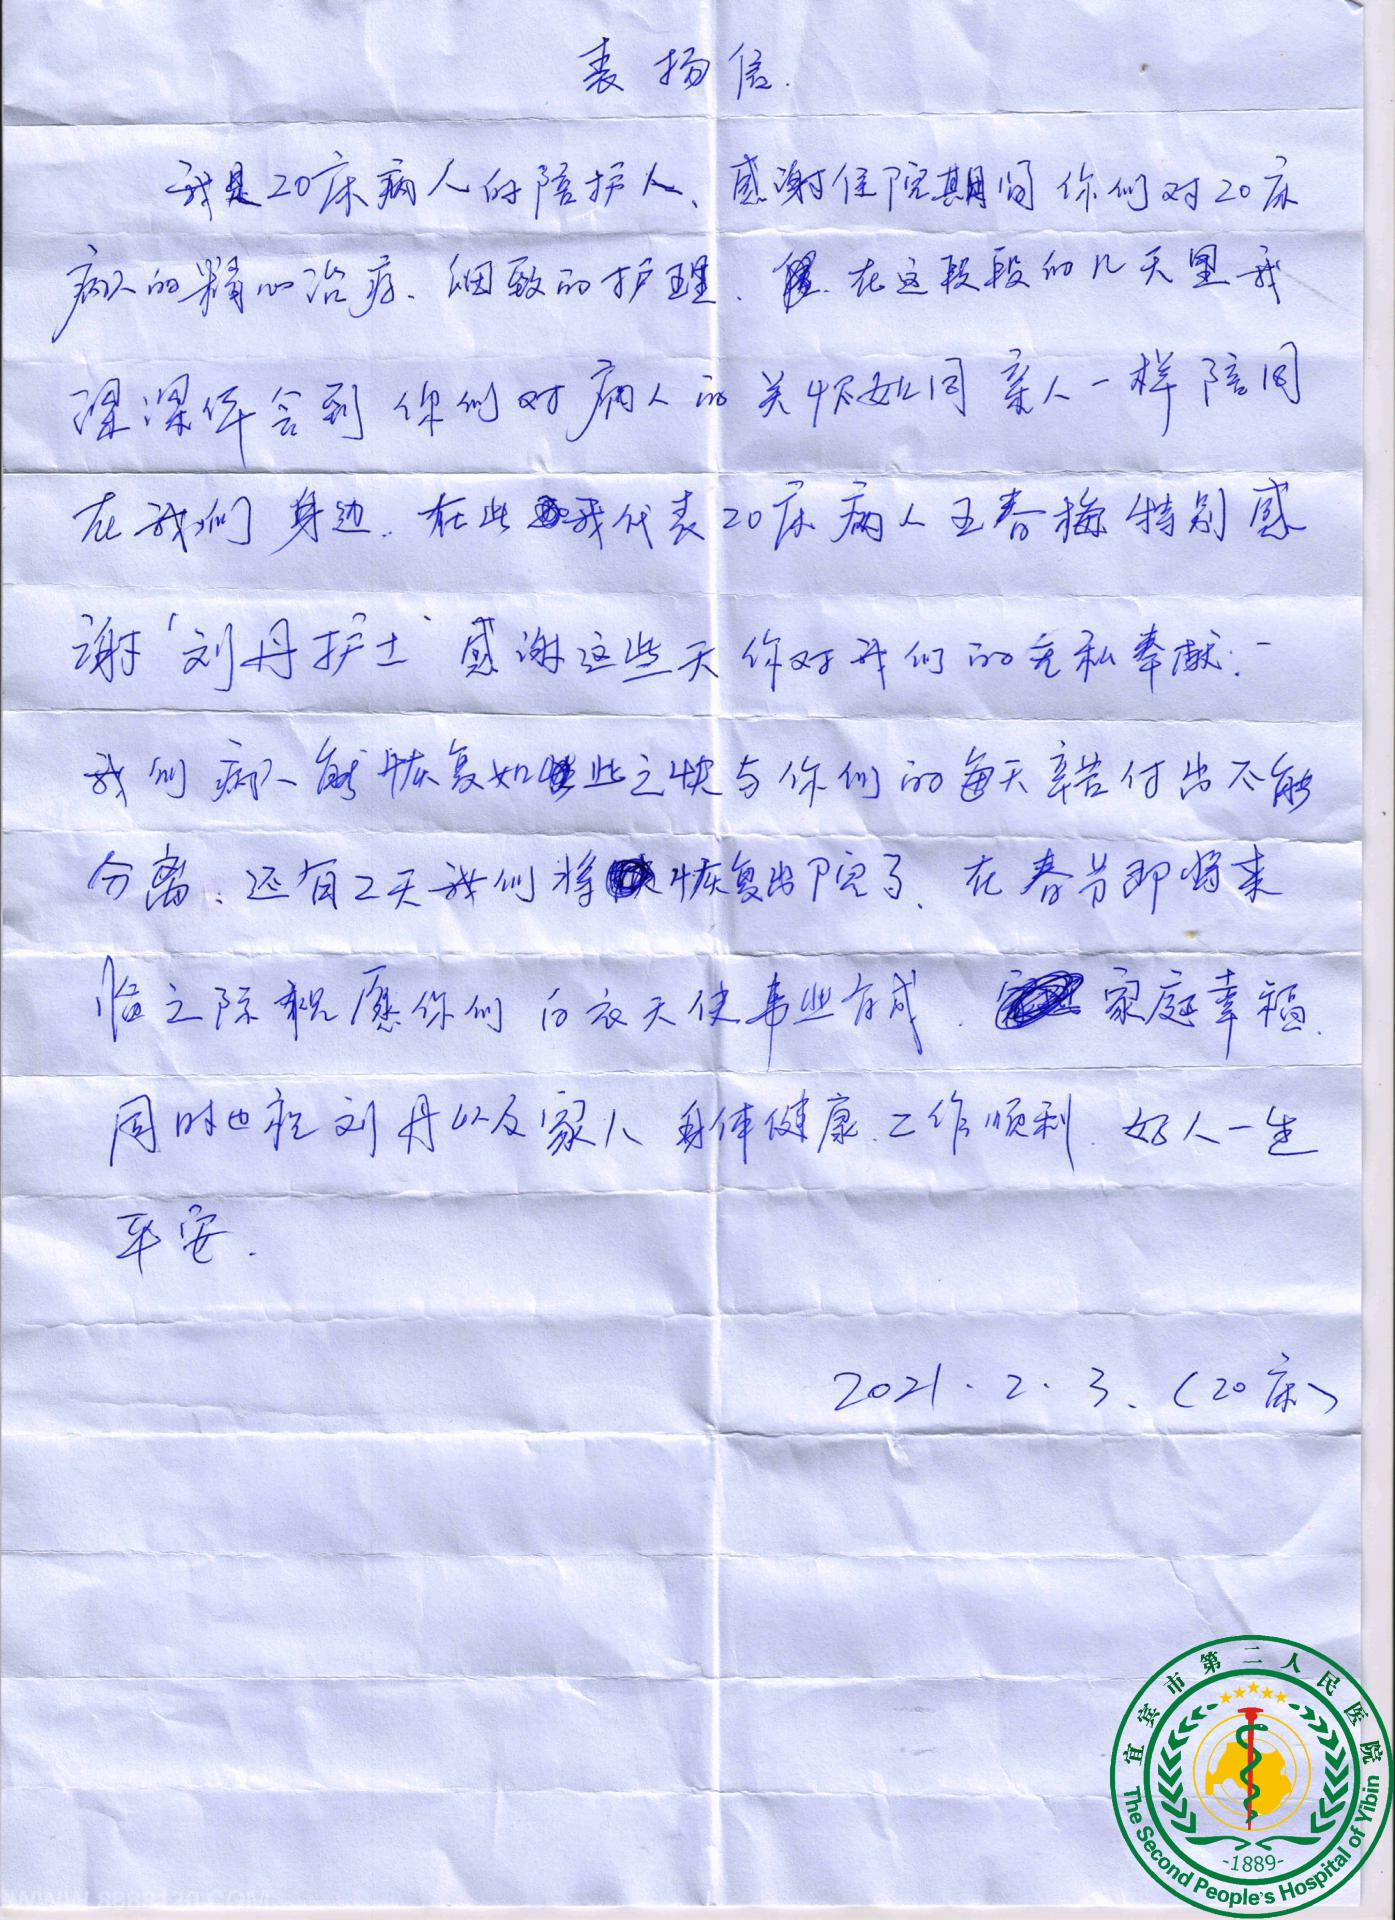 表扬信.
我是20床病人的陪护人、感谢住院期间你们对20床
病人的精心治疗、细致的护理、在这段段的几天里我
深深体会到你们对病人的关怀如同亲人一样陪同
在我们身边.在此我代表20床病人王春梅特别感
谢"刘丹护士"感谢这些天你对我们的无私奉献:一
我们病人能恢复如此之快与你们的每天辛苦付出不能
分离:还有2天我们将恢复出院了、在春节即将来
临之际祝愿你们白衣天使事业有成、家庭幸福.
同时也祝刘丹以及家人身体健康.工作顺利.好人一生
平安.
2021.2.3.(20床)
宜宾市第二人民医院
-1889-
The Second People's Hospital of Yibin